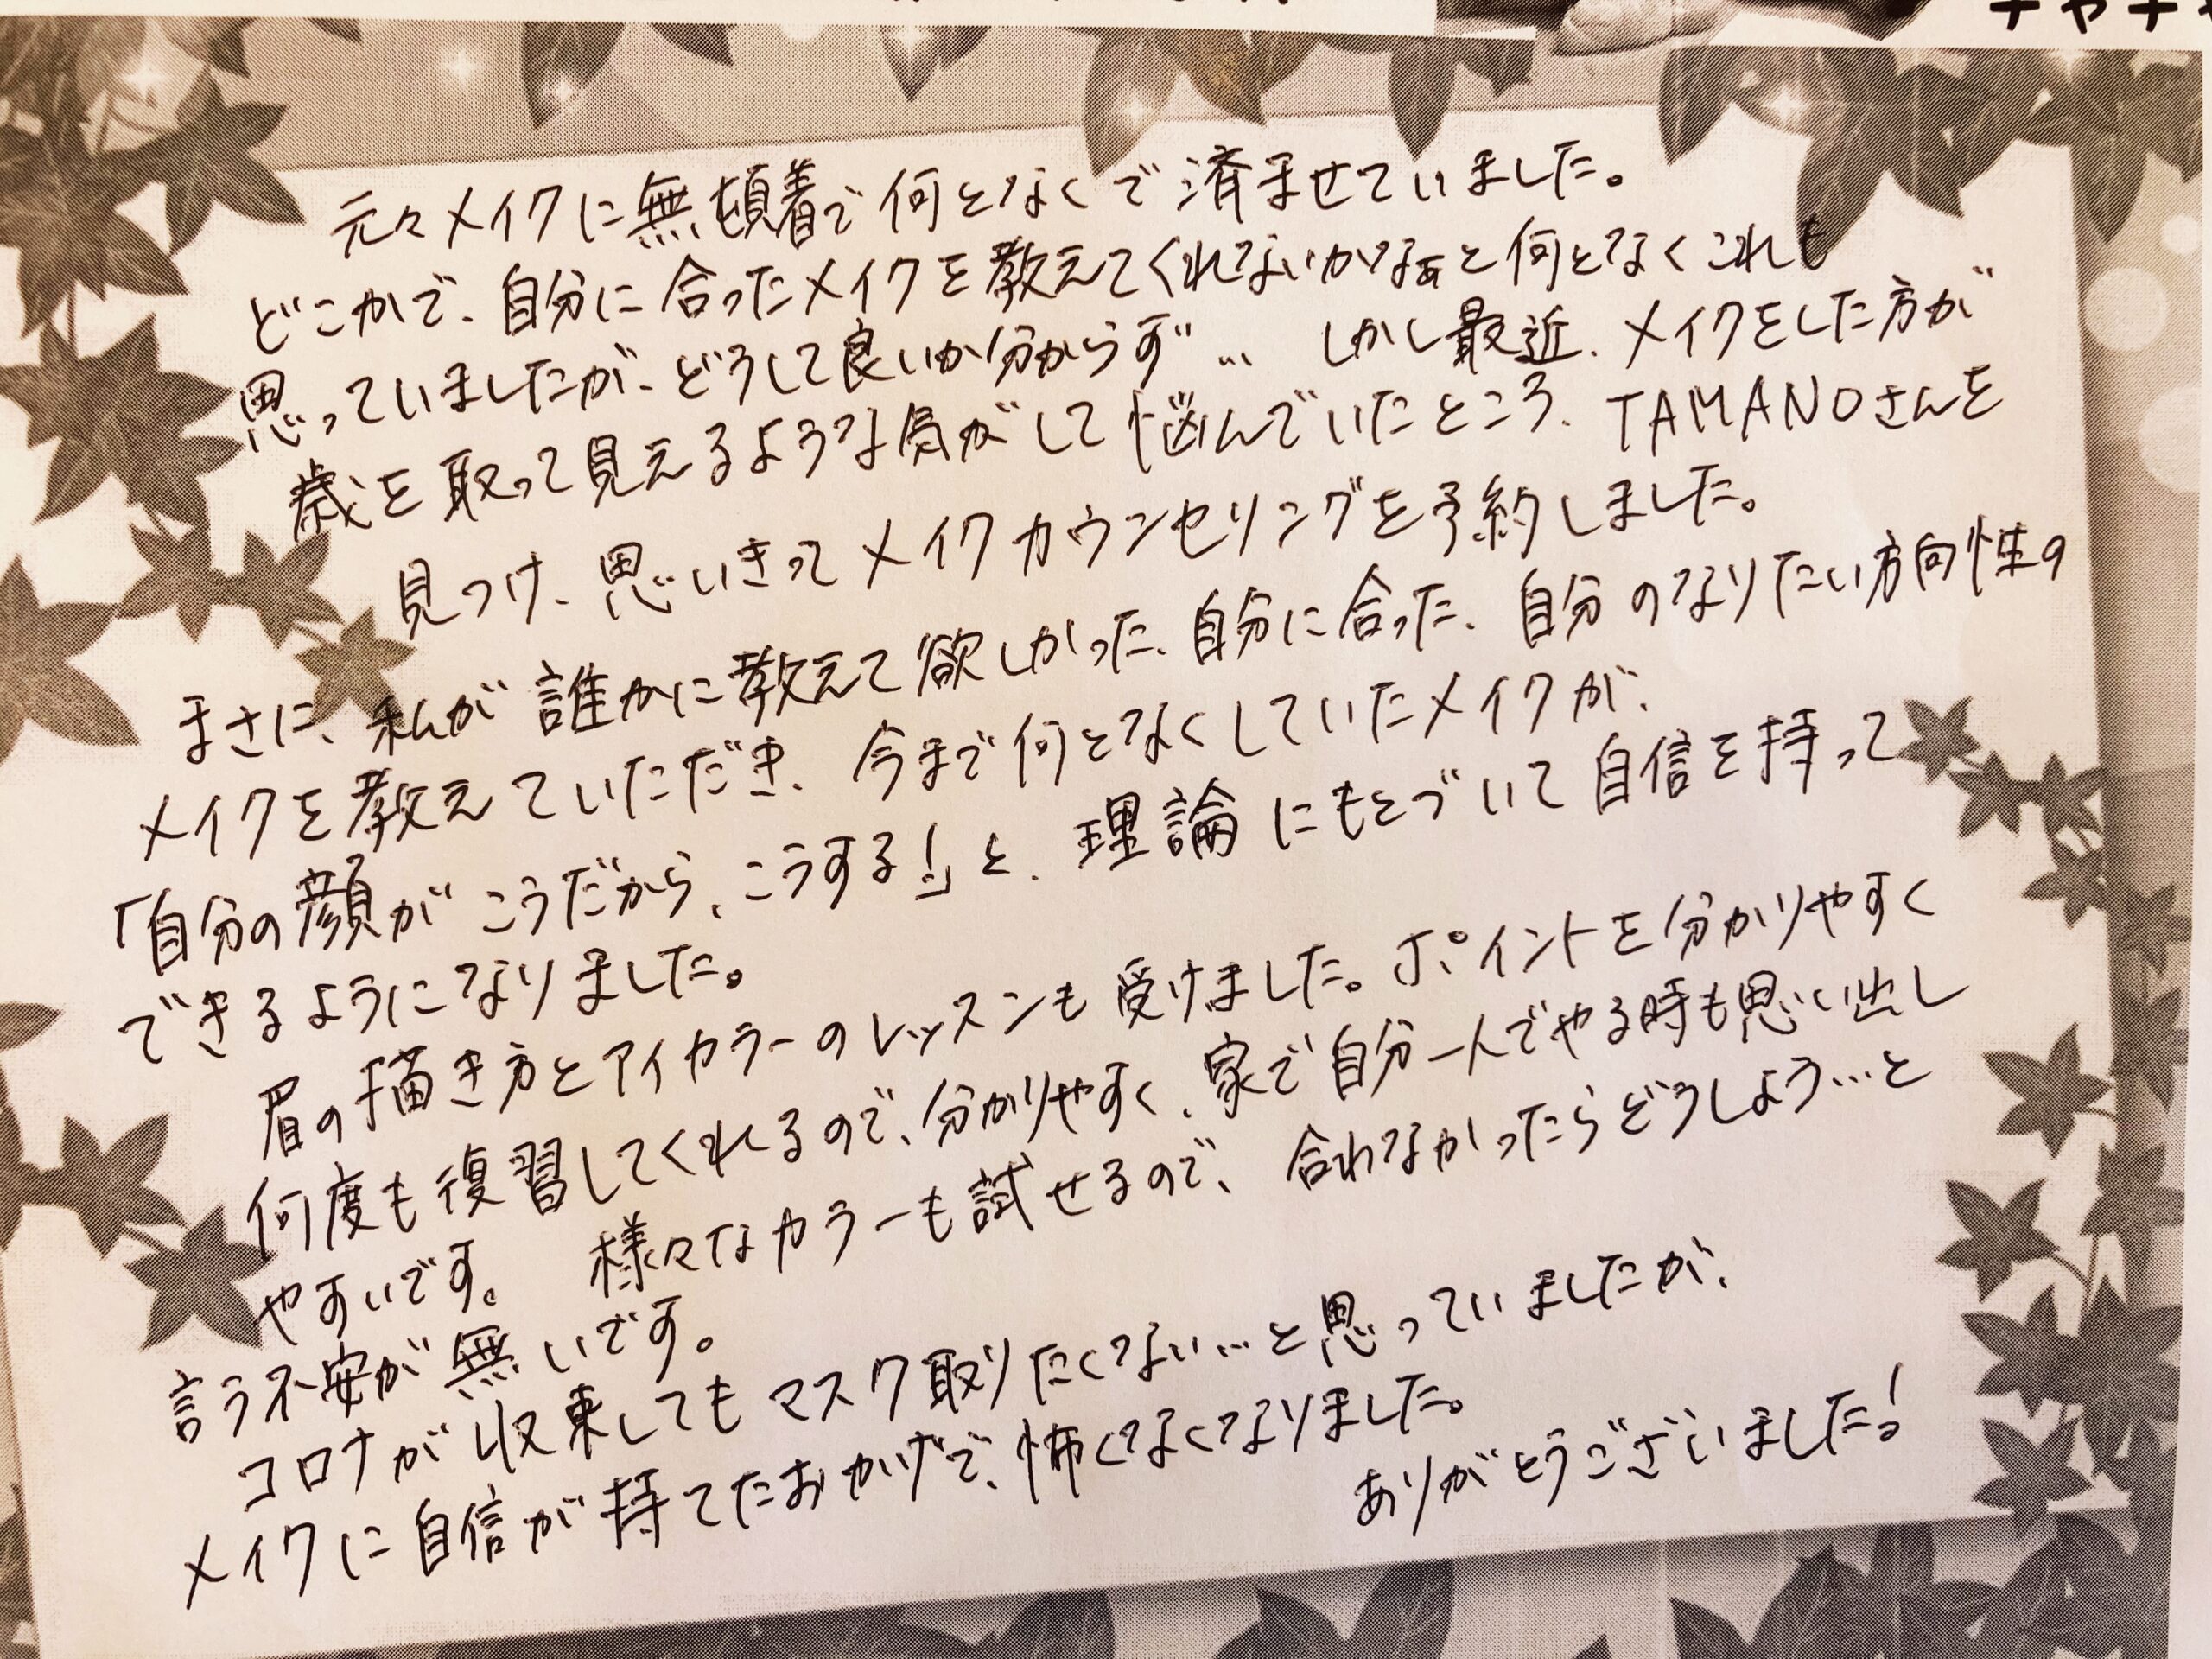 元々メイクに無頓着で何となくで済ませていました。
どこかで、自分に合ったメイクを教えてくれないかなぁと何となくこれも
思っていましたが、どうして良いか分からず… しかし最近、メイクをした方が
歳を取って見えるような気がして悩んでいたところ、TAMANOさんを
見つけ、思いきってメイクカウンセリングを予約しました。
まさに、私が誰かに教えて欲しかった、自分に合った、自分のなりたい方向性の
メイクを教えていただき、今まで何となくしていたメイクが、
「自分の顔がこうだから、こうする!」と、理論にもとづいて自信を持って
できるようになりました。
眉の描き方とアイカラーのレッスンも受けました。ポイントを分かりやすく
何度も復習してくれるので、分かりやすく、家で自分一人でやる時も思い出し
やすいです。 様々なカラーも試せるので、合わなかったらどうしよう…と
言う不安が無いです。
コロナが収束してもマスク取りたくない…と思っていましたが、
メイクに自信が持てたおかげで、怖くなくなりました。
ありがとうございました!